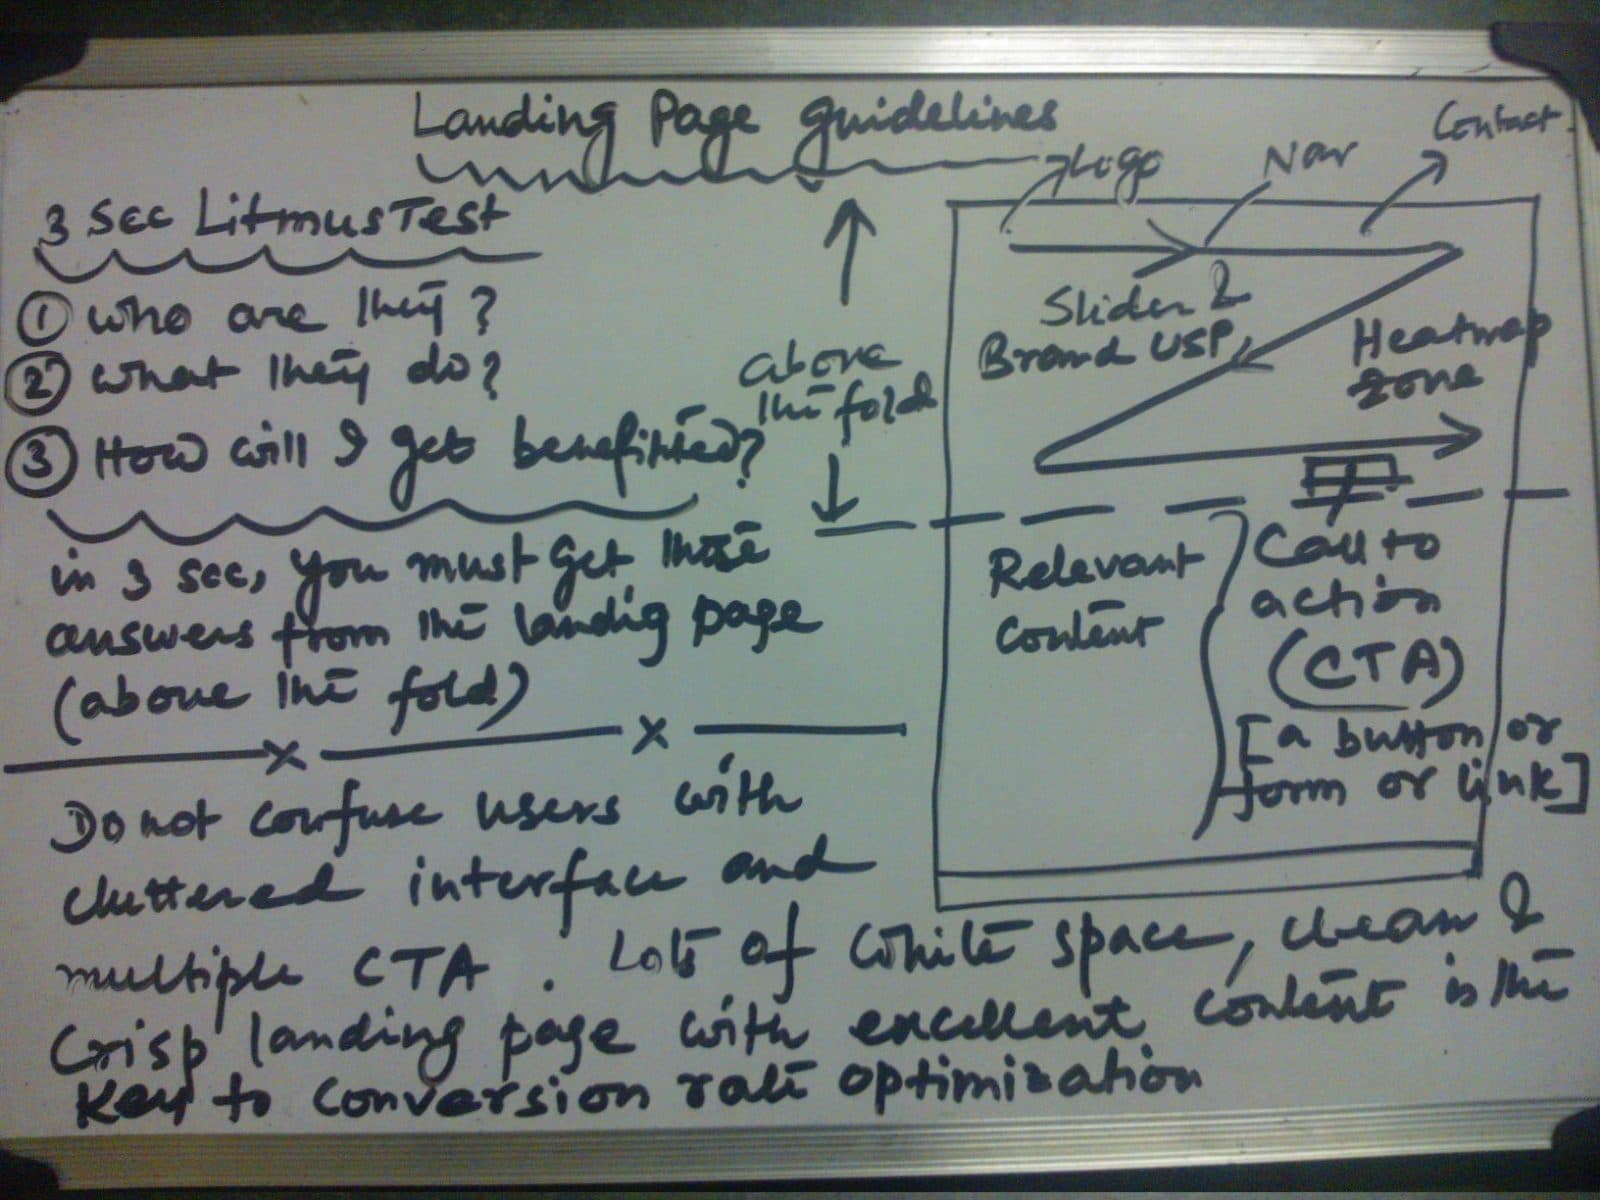 Landing Page guidelines
3 Sec Litmus Test
① who are they?
② what they do?
③ How will I get benefitted?
in 3 sec, you must get these
answers from the landig page
(above the fold)
above
the fold
Logo
Nav
Contact
Slider &
Brand USP
Heatmap
zone
Relevant
Content
Call to
action
(CTA)
[a button or
form or link]
Do not confuse users with
cluttered interface and
multiple CTA. Lots of white space, clean &
crisp landing page with excellent content is the
key to conversion rate optimization